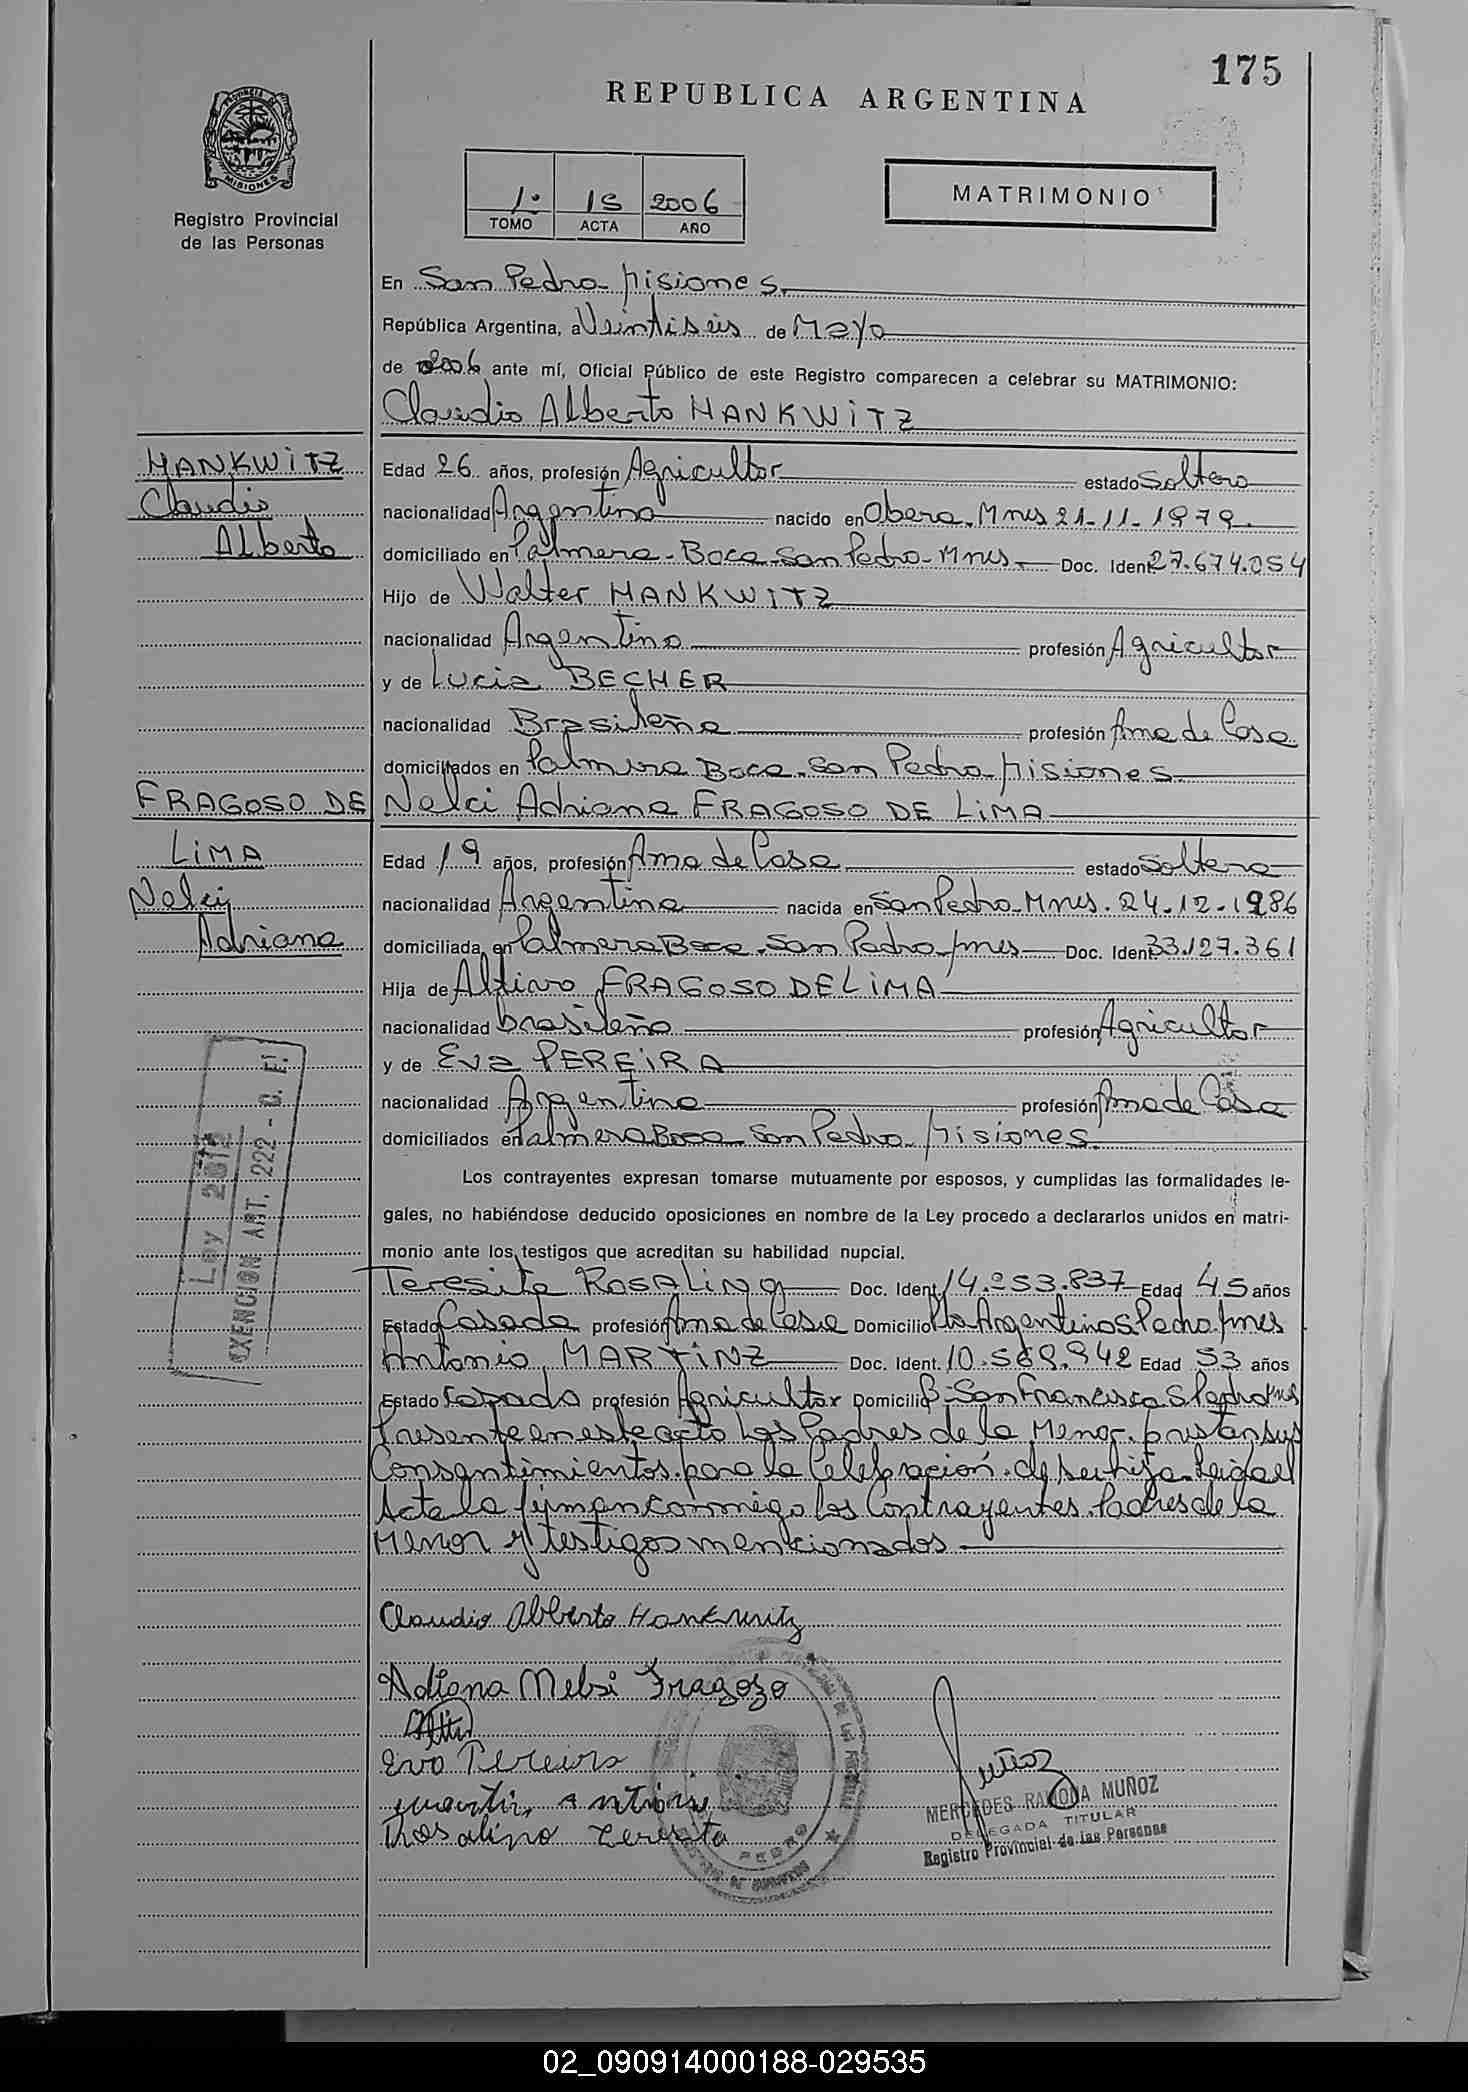 175
REPUBLICA ARGENTINA
PROVINCIA DE
MISIONES
Registro Provincial
de las Personas
1º 15 2006
TOMO ACTA AÑO
MATRIMONIO
En San Pedro Misiones.
República Argentina, a Veintiseis de Mayo
de 2006 ante mí, Oficial Público de este Registro comparecen a celebrar su MATRIMONIO:
Claudio Alberto HANKWITZ
HANKWITZ
Claudio
Alberto
Edad 26 años, profesión Agricultor estado Soltero
nacionalidad Argentino nacido en Obera. Mnes 21-11-1979.
domiciliado en Palmera-Boca-San Pedro-Mnes Doc. Ident. 27.674.054
Hijo de Walter HANKWITZ
nacionalidad Argentino profesión Agricultor
y de Lucia BECHER
nacionalidad Brasileña profesión Ama de Casa
domiciliados en Palmera Boca. San Pedro Misiones
FRAGOSO DE
LIMA
Nelci
Adriana
Nelci Adriana FRAGOSO DE LIMA
Edad 19 años, profesión Ama de Casa estado Soltera
nacionalidad Argentina nacida en San Pedro-Mnes. 24.12.1986
domiciliada en Palmera Boca. San Pedro mnes Doc. Ident. 33.127.361
Hija de Altivo FRAGOSO DE LIMA
nacionalidad brasileño profesión Agricultor
y de Eva PEREIRA
nacionalidad Argentina profesión Ama de Casa
domiciliados en Palmera Boca San Pedro Misiones.
Ley
EXENCION ART. 222 -
Los contrayentes expresan tomarse mutuamente por esposos, y cumplidas las formalidades le-
gales, no habiéndose deducido oposiciones en nombre de la Ley procedo a declararlos unidos en matri-
monio ante los testigos que acreditan su habilidad nupcial.
Teresita ROSALINO Doc. Ident. 14.253.837 Edad 45 años
Estado Casada profesión Ama de Casa Domicilio Argentino S Pedro mnes
Antonio MARTINZ Doc. Ident. 10.569.942 Edad 53 años
Estado Casado profesión Agricultor Domicilio Bº San Francisco S Pedro Mnes
Presente en este acto los Padres de la Menor. prestan sus
Consentimientos para la Celebración de su hija
Acta la firman conmigo los Contrayentes. Padres de la
Menor y testigos mencionados
Claudio Alberto Hankwitz
Adriana Nelsi Fragozo
Eva Pereira
Rosalino Teresita
PEDRO
Muñoz
MERCEDES RAMONA MUÑOZ
DELEGADA TITULAR
Registro Provincial de las Personas
02_090914000188-029535